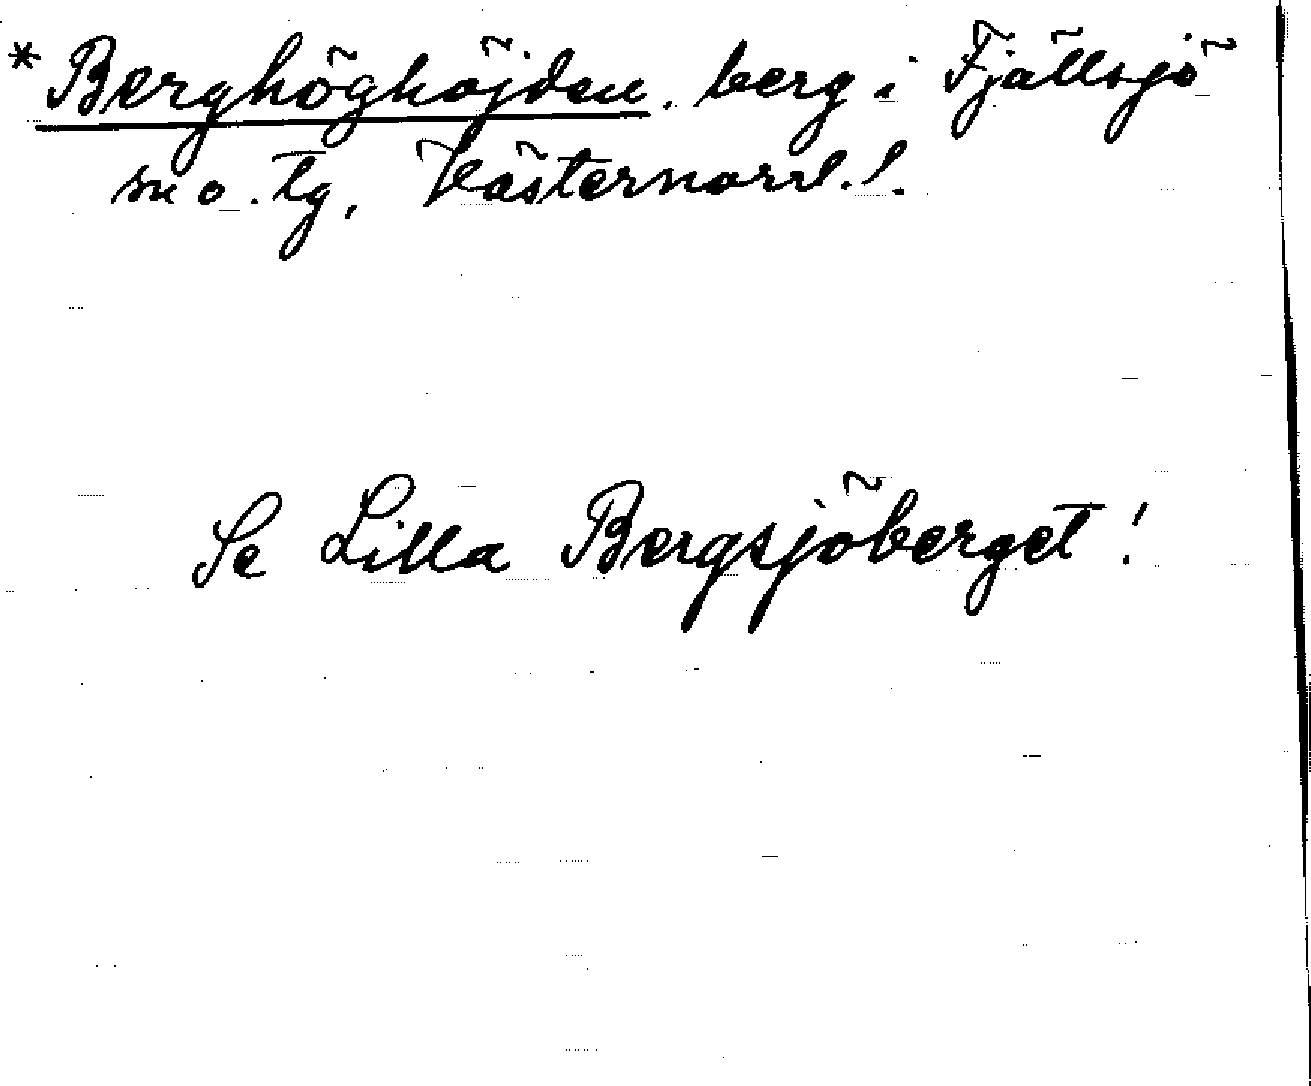 *Berghöghöjden, berg i Fjällsjö
sn o. tg, Västernorrl. l.
Se Lilla Bergsjöberget!